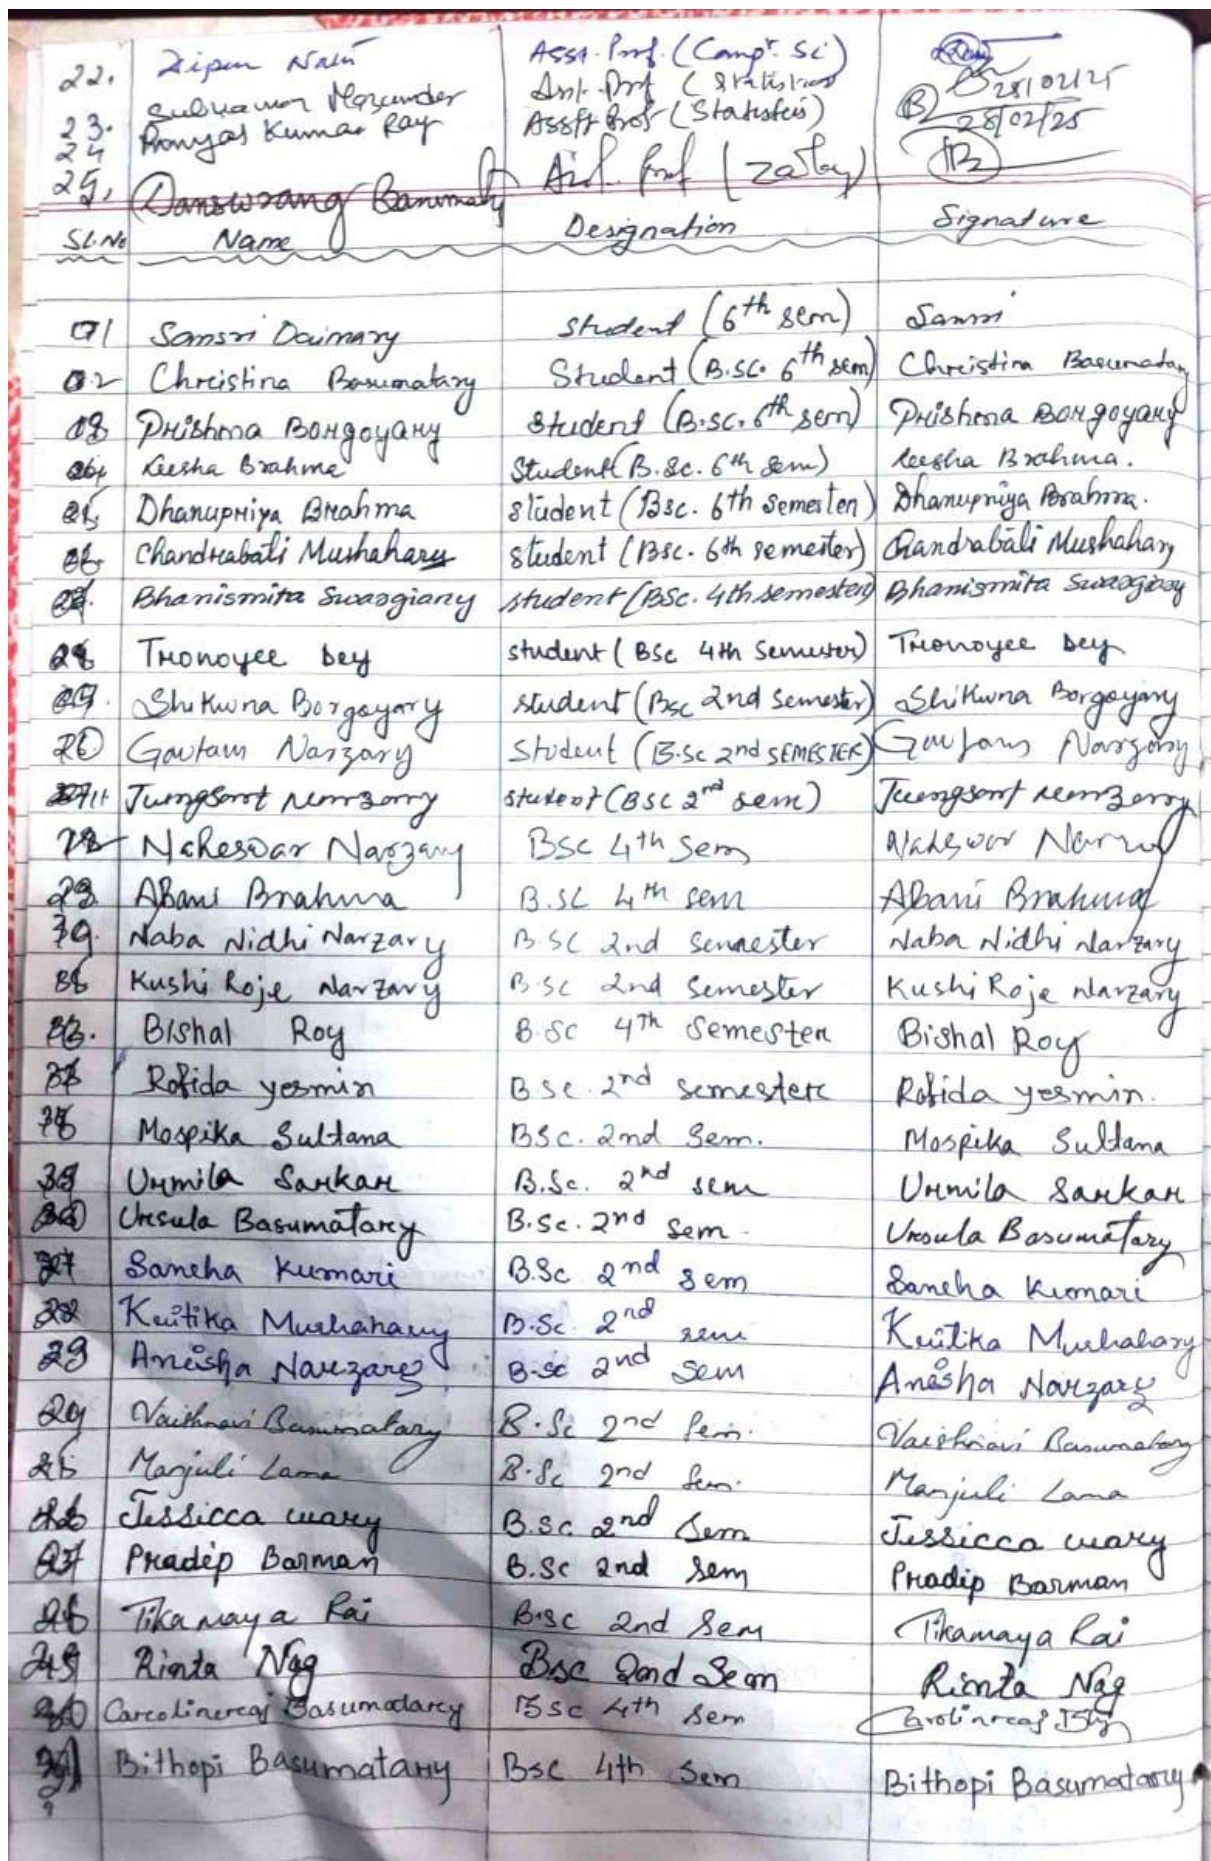 22. Dipen Nath Asst. Prof. (Comp. Sc)
Mazumder Asst. Prof (Statistics 28/02/25
23. Kumar Ray Asstt Prof (Statistics) 28/02/25
24
25. Asst. Prof (Zoology)
Sl.No Name Designation Signature
01 Sansri Daimary Student (6th sem) Sansri
02 Christina Basumatary Student (B.SC. 6th sem) Christina Basumatary
03 Prishma Borgoyary Student (B.SC. 6th sem) Prishma Borgoyary
Leesha Brahma Student (B.Sc. 6th Sem) Leesha Brahma.
Dhanupriya Brahma student (Bsc. 6th Semester) Dhanupriya Brahma.
Chandrabali Mushahary student (Bsc. 6th semester) Chandrabali Mushahary
Bhanismita Swargiary student (BSc. 4th semester) Bhanismita Swargiary
Tronoyee Dey student (BSc 4th Semester) Tronoyee Dey
Shikuna Borgoyary student (BSc 2nd Semester) Shikuna Borgoyary
Goutam Narzary Student (B.Sc 2nd SEMESTER) Goutam Narzary
student (BSC 2nd sem)
Naheswar Narzary BSc 4th Sem Naheswar
Abani Brahma B.SC 4th sem Abani Brahma
Naba Nidhi Narzary B.SC 2nd Semester Naba Nidhi Narzary
Kushi Roje Narzary B.SC 2nd Semester Kushi Roje Narzary
Bishal Roy B.Sc 4th Semester Bishal Roy
Rofida yesmin B.Sc. 2nd semester Rofida yesmin.
Mospika Sultana BSc. 2nd Sem. Mospika Sultana
Urmila Sarkar B.Sc. 2nd sem Urmila Sarkar
Ursula Basumatary B.Sc. 2nd sem. Ursula Basumatary
Saneha Kumari B.Sc 2nd sem Saneha Kumari
Kritika Mushahary B.Sc. 2nd sem Kritika Mushahary
Anisha Narzary B.Sc 2nd Sem Anisha Narzary
Vaishnavi Basumatary B.Sc 2nd Sem. Vaishnavi Basumatary
Manjuli Lama B.Sc 2nd Sem. Manjuli Lama
Jessicca wary B.Sc 2nd Sem Jessicca wary
Pradip Barman B.Sc 2nd Sem Pradip Barman
Tikamaya Rai B.Sc 2nd Sem Tikamaya Rai
Rimta Nag Bsc 2nd Sem Rimta Nag
Basumatary BSc 4th Sem
Bithopi Basumatary Bsc 4th Sem Bithopi Basumatary